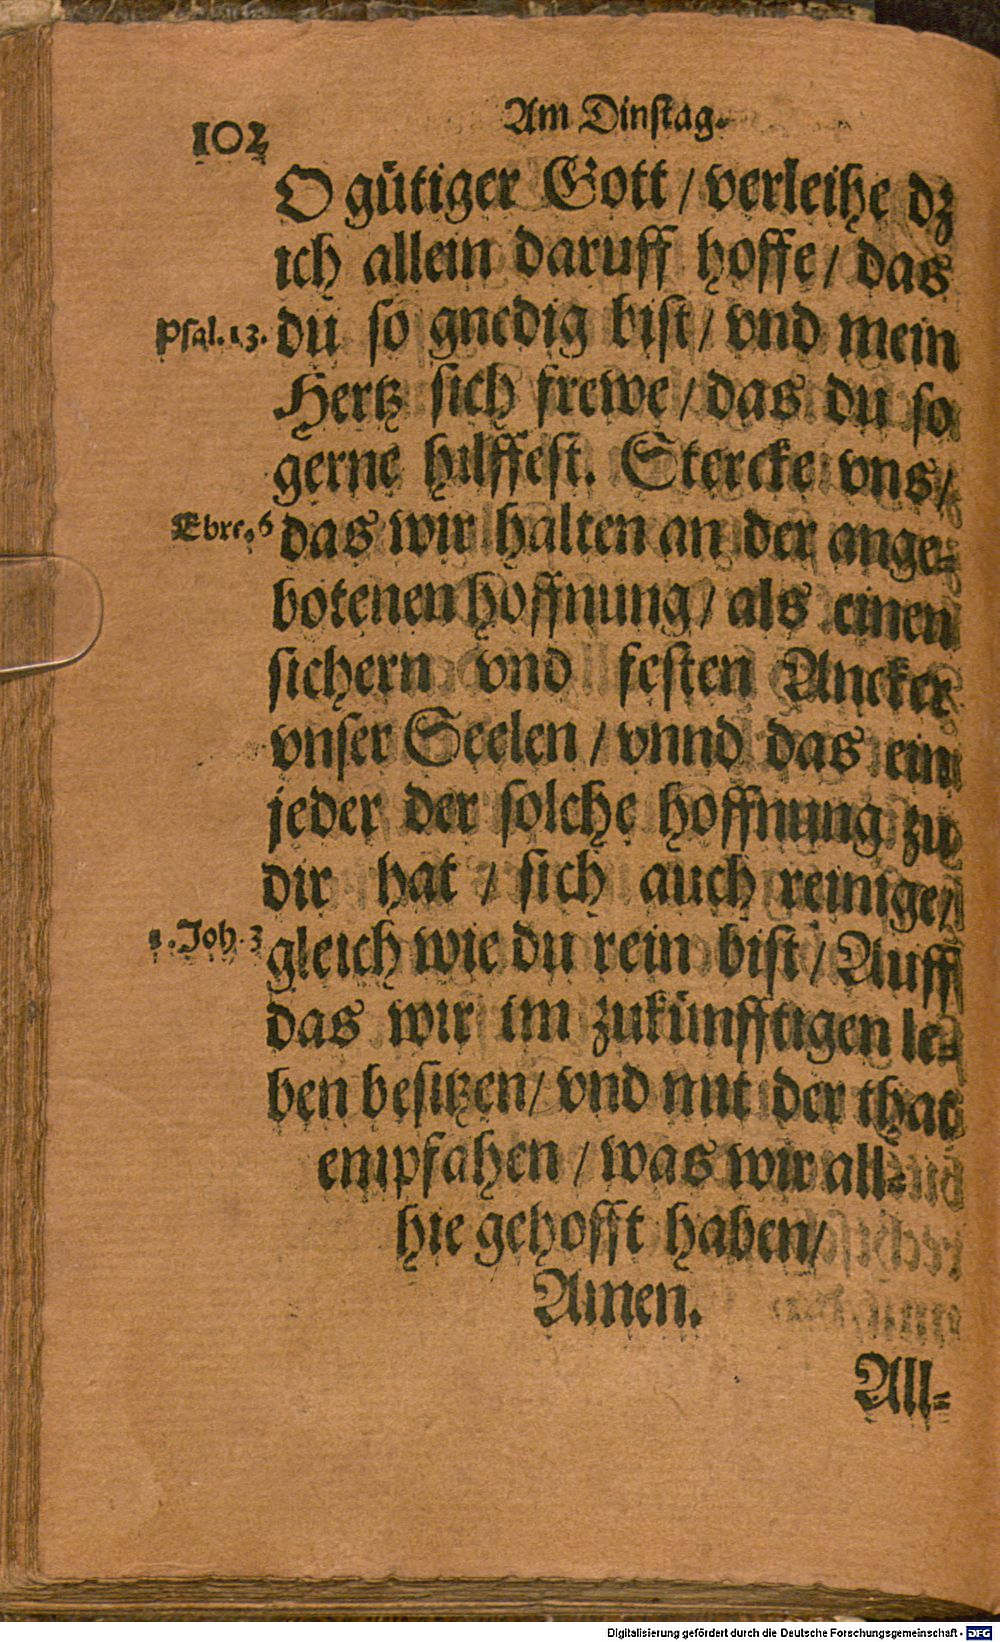 102
Am Dinstag.
O gütiger Gott / verleihe dz
ich allein daruff hoffe / das
Psal. 13. du so gnedig bist / vnd mein
Hertz sich frewe / das du so
gerne hilffest. Stercke vns /
Ebre. 6 das wir halten an der ange-
botenen hoffnung / als einen
sichern vnd festen Ancker
vnser Seelen / vnnd das ein
jeder der solche hoffnung zu
dir hat / sich auch reinige /
1. Joh. 3 gleich wie du rein bist / Auff
das wir im zukünfftigen le-
ben besitzen / vnd mit der that
empfahen / was wir all-
hie gehofft haben /
Amen.
All-
Digitalisierung gefördert durch die Deutsche Forschungsgemeinschaft - DFG